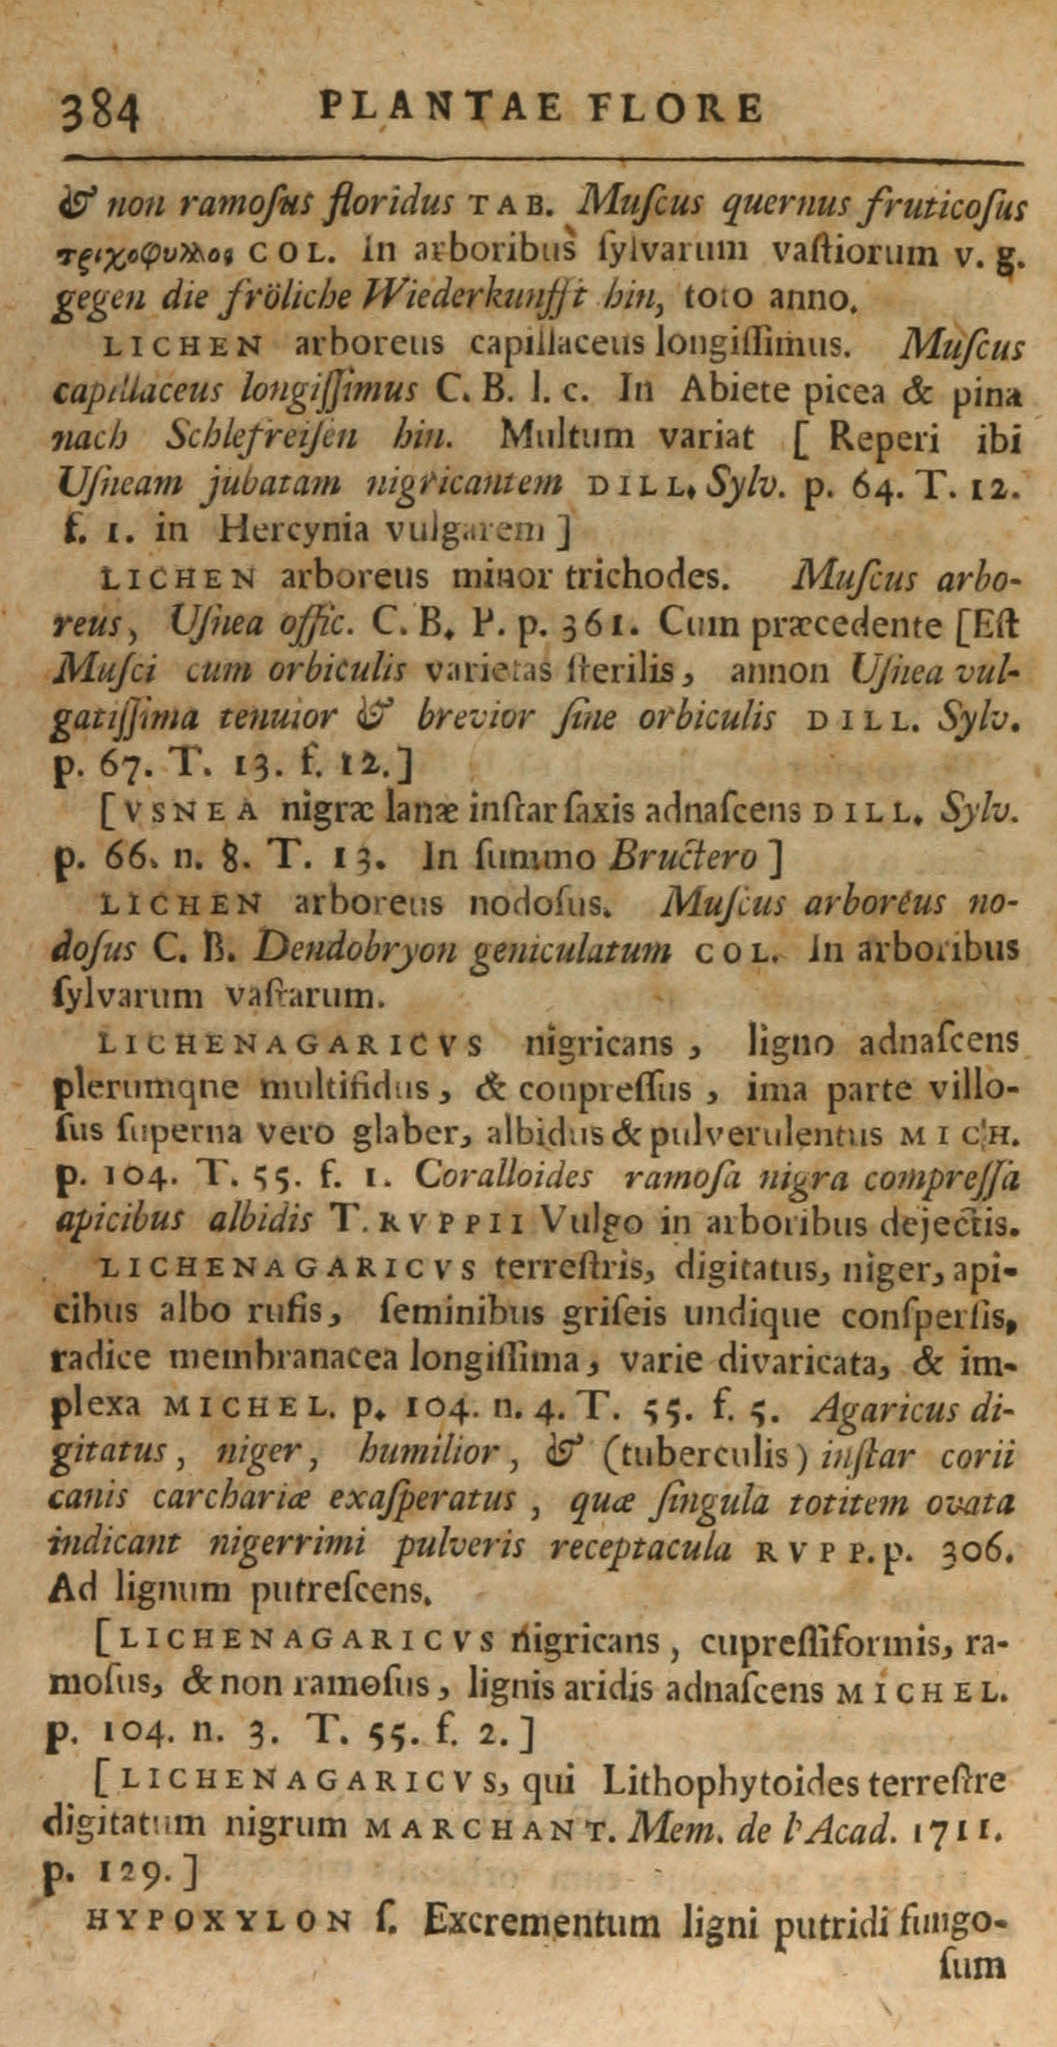 384 PLANTAE FLORE
& non ramoſus floridus TAB. Muſcus quernus fruticoſus
τριχοφυλλος COL. In arboribus ſylvarum vaſtiorum v. g.
gegen die fröliche Wiederkunfft hin, toto anno.
LICHEN arboreus capillaceus longiſſimus. Muſcus
capillaceus longiſſimus C. B. l. c. In Abiete picea & pina
nach Schlefreiſen hin. Multum variat [ Reperi ibi
Uſneam jubatam nigricantem DILL. Sylv. p. 64. T. 12.
f. 1. in Hercynia vulgarem ]
LICHEN arboreus minor trichodes. Muſcus arbo-
reus, Uſnea offic. C. B. P. p. 361. Cum præcedente [Eſt
Muſci cum orbiculis varietas ſterilis, annon Uſnea vul-
gatiſſima tenuior & brevior ſine orbiculis DILL. Sylv.
p. 67. T. 13. f. 12.]
[VSNEA nigræ lanæ inſtar ſaxis adnaſcens DILL. Sylv.
p. 66. n. 8. T. 13. In ſummo Bructero ]
LICHEN arboreus nodoſus. Muſcus arboreus no-
doſus C. B. Dendobryon geniculatum COL. In arboribus
ſylvarum vaſtarum.
LICHENAGARICVS nigricans, ligno adnaſcens
plerumqne multifidus, & conpreſſus, ima parte villo-
ſus ſuperna vero glaber, albidus & pulverulentus MICH.
p. 104. T. 55. f. 1. Coralloides ramoſa nigra compreſſa
apicibus albidis T. RVPPII Vulgo in arboribus dejectis.
LICHENAGARICVS terreſtris, digitatus, niger, api-
cibus albo rufis, ſeminibus griſeis undique conſperſis,
radice membranacea longiſſima, varie divaricata, & im-
plexa MICHEL. p. 104. n. 4. T. 55. f. 5. Agaricus di-
gitatus, niger, humilior, & (tuberculis) inſtar corii
canis carchariæ exaſperatus, quæ ſingula totitem ovata
indicant nigerrimi pulveris receptacula RVPP. p. 306.
Ad lignum putreſcens.
[LICHENAGARICVS nigricans, cupreſſiformis, ra-
moſus, & non ramoſus, lignis aridis adnaſcens MICHEL.
p. 104. n. 3. T. 55. f. 2.]
[LICHENAGARICVS, qui Lithophytoides terreſtre
digitatum nigrum MARCHANT. Mem. de l'Acad. 1711.
p. 129.]
HYPOXYLON ſ. Excrementum ligni putridi fungo-
ſum